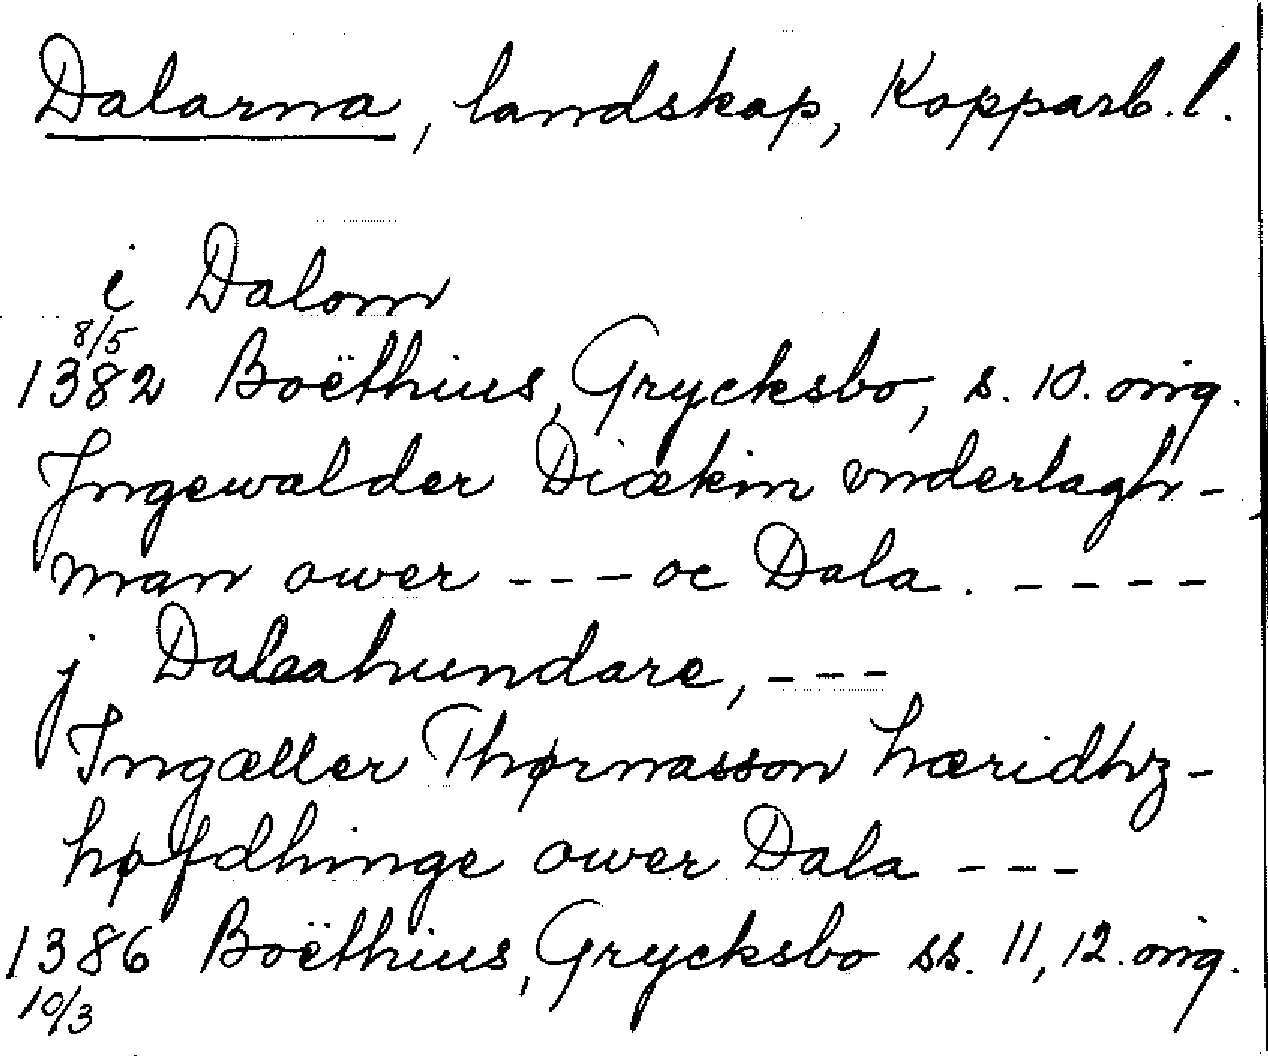 Dalarna, landskap, Kopparb. l.
i Dalom
8/5
1382 Boëthius, Grycksbo, s. 10. orig.
Jngewalder Diækin vnderlagh-
man ower --- oc Dala. ----
j Dalaahundare, ---
Ingæller Thørnasson hæridhz-
høfdhinge ower Dala ---
1386 Boëthius, Grycksbo ss. 11, 12. orig.
10/3